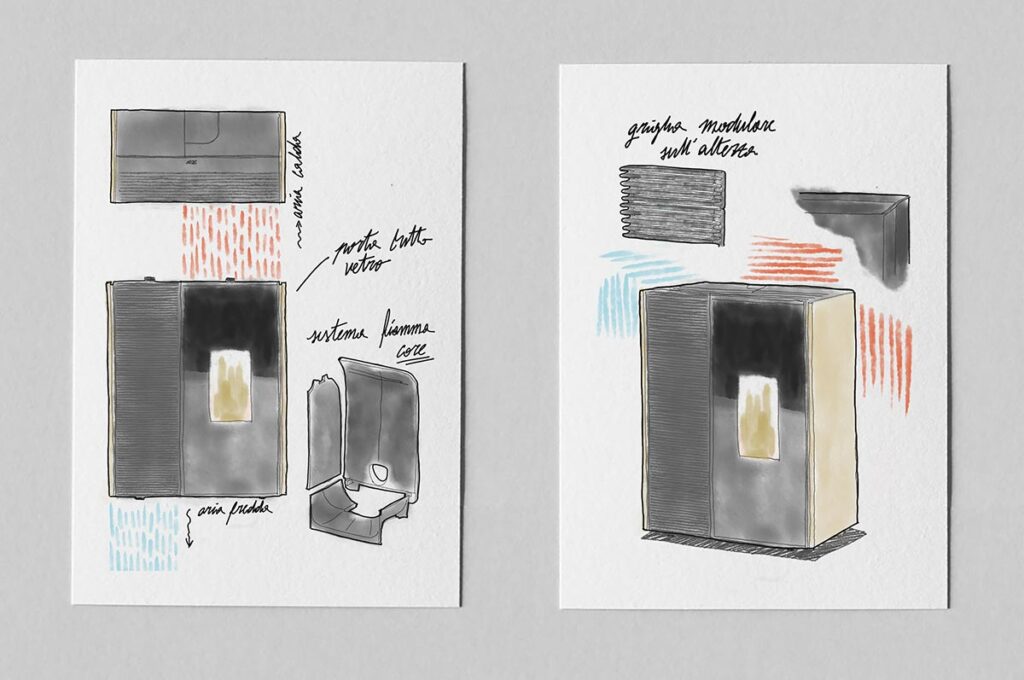 aria calda
porta tutto
vetro
sistema fiamma
core
aria fredda
griglia modulare
sull'altezza